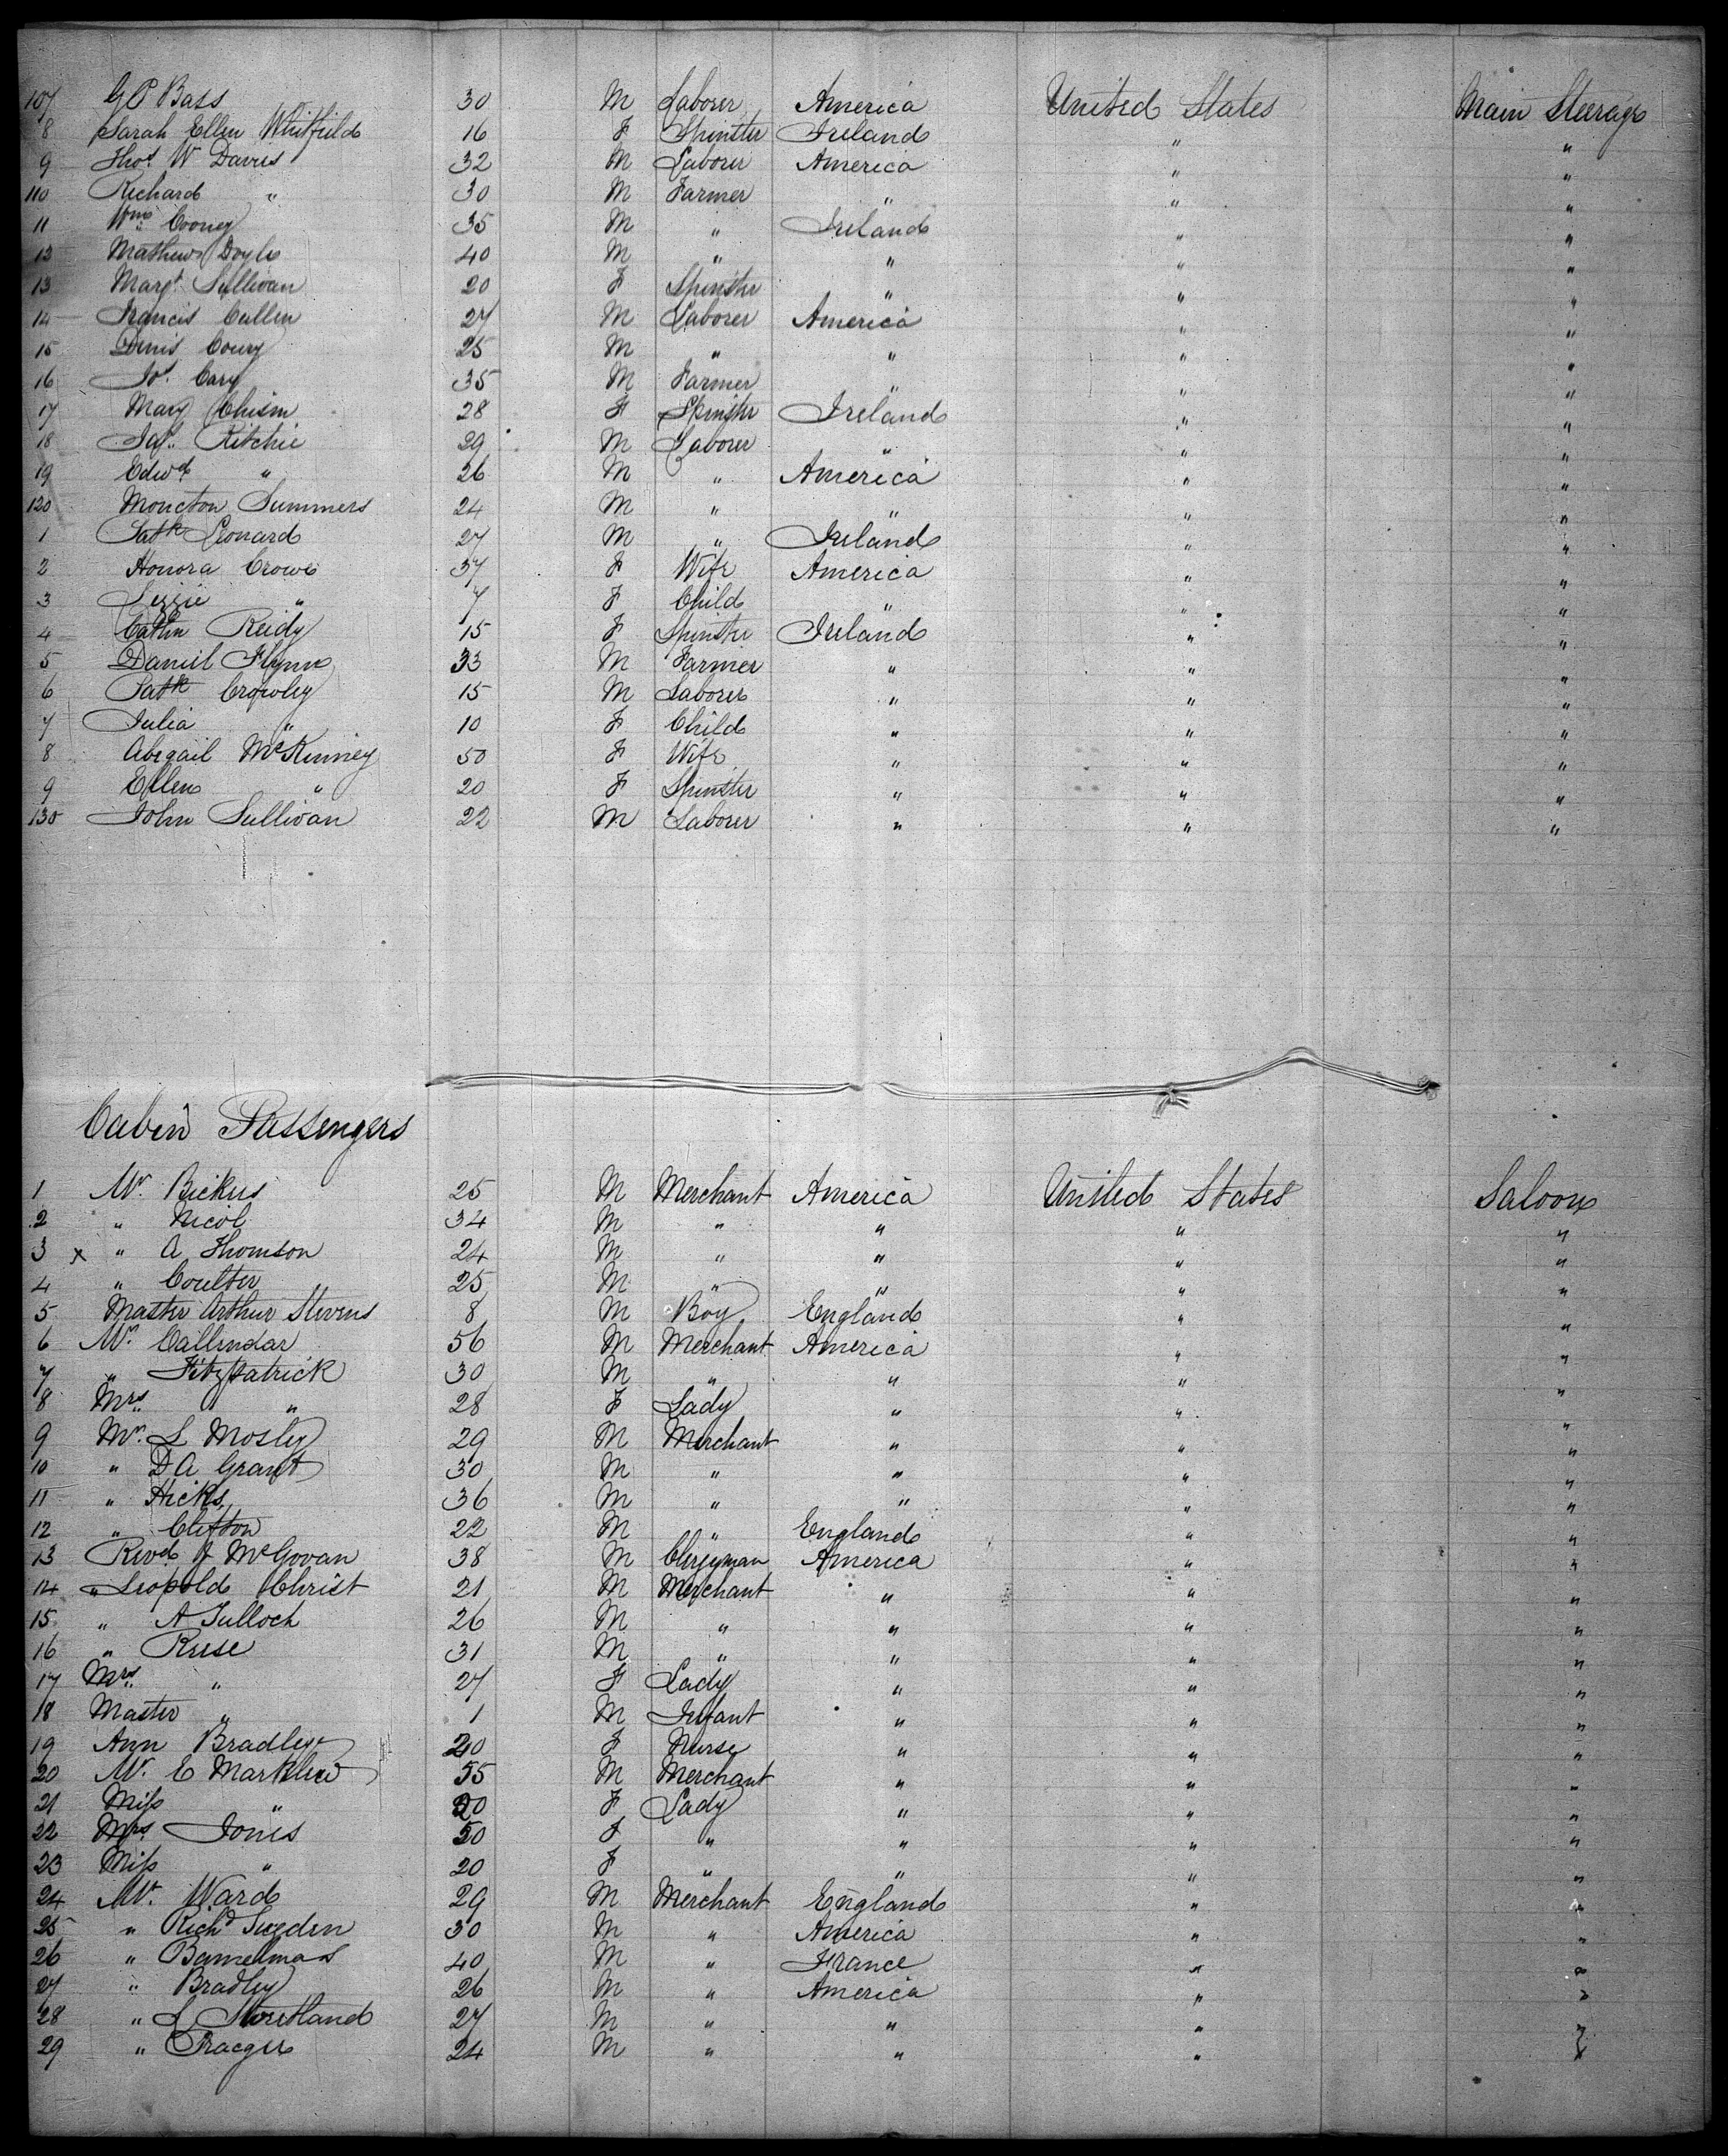 107 G P Bass 30 M Laborer America United States Main Steerage
8 Sarah Ellen Whitfield 16 F Spinster Ireland " "
9 Thos W Davies 32 M Laborer America " "
110 Richard " 30 M Farmer " " "
11 Wm Cooney 35 M " Ireland " "
12 Mathew Doyle 40 M " " " "
13 Margt Sullivan 20 F Spinster " " "
14 Francis Cullen 27 M Laborer America " "
15 Denis 25 M " " " "
16 Jos. Cary 35 M Farmer " " "
17 Mary Chism 28 F Spinster Ireland " "
18 Jas. Ritchie 29 M Laborer " " "
19 Edwd " 26 M " America " "
120 Moncton Summers 24 M " " " "
1 Patk Leonard 27 M " Ireland " "
2 Honora Crowe 37 F Wife America " "
3 Lizzie " 7 F Child " " "
4 Cathn Reidy 15 F Spinster Ireland " "
5 Daniel Flynn 33 M Farmer " " "
6 Patk Crowley 15 M Laborer " " "
7 Julia " 10 F Child " " "
8 Abigail McKinney 50 F Wife " " "
9 Ellen " 20 F Spinster " " "
130 John Sullivan 22 M Laborer " " "
Cabin Passengers
1 Mr. Bickus 25 M Merchant America United States Saloon
2 " Nicol 34 M " " " "
3 x " A Thomson 24 M " " " "
4 " Coulter 25 M " " " "
5 Master Arthur Stevens 8 M Boy England " "
6 Mr. Callendar 56 M Merchant America " "
7 " Fitzpatrick 30 M " " " "
8 Mrs. " 28 F Lady " " "
9 Mr. L Mosley 29 M Merchant " " "
10 " D A Grant 30 M " " " "
11 " Hicks 36 M " " " "
12 " Clifton 22 M " England " "
13 Revd J McGovan 38 M Clergyman America " "
14 " Leopold Christ 21 M Merchant " " "
15 " A Tulloch 26 M " " " "
16 " Ruse 31 M " " " "
17 Mrs. " 27 F Lady " " "
18 Master " 1 M Infant " " "
19 Ann Bradley 20 F Nurse " " "
20 Mr. E Marklew 55 M Merchant " " "
21 Miss " F Lady " " "
22 Mrs Jones 50 F " " " "
23 Miss " 20 F " " " "
24 Mr. Ward 29 M Merchant England " "
25 " Richd 30 M " America " "
26 " 40 M " France " "
27 " Bradley 26 M " America " "
28 " L 27 M " " " "
29 " Praeger 24 M " " " "